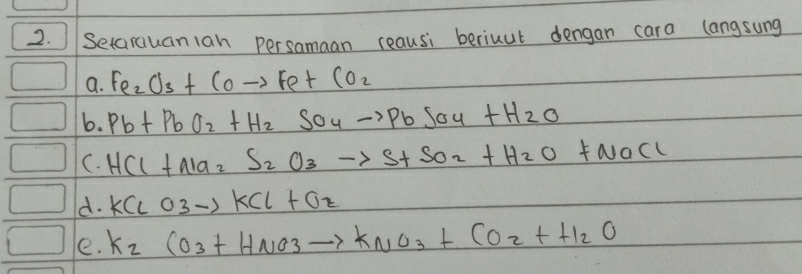 2. Setarauanlah persamaan reausi beriuut dengan cara langsung
a. Fe2O3 + CO -> Fe + CO2
b. Pb + PbO2 + H2 SO4 -> Pb SO4 + H2O
c. HCl + Na2 S2 O3 -> S + SO2 + H2O + NaCl
d. KCL O3 -> KCl + O2
e. K2 CO3 + HNO3 -> KNO3 + CO2 + H2O